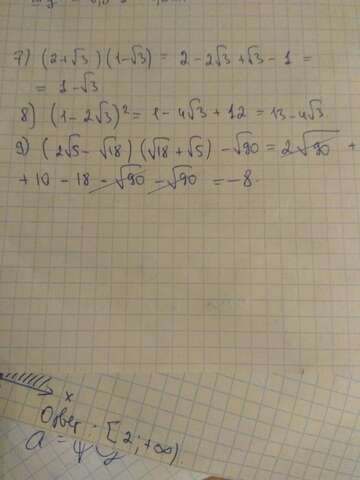 7) (2+√3)(1-√3) = 2 - 2√3 + √3 - 1 =
= 1 - √3
8) (1 - 2√3)² = 1 - 4√3 + 12 = 13 - 4√3
9) (2√5 - √18)(√18 + √5) - √90 = 2√90 +
+ 10 - 18 - √90 - √90 = -8.
x
Ответ: [2; +∞)
a =